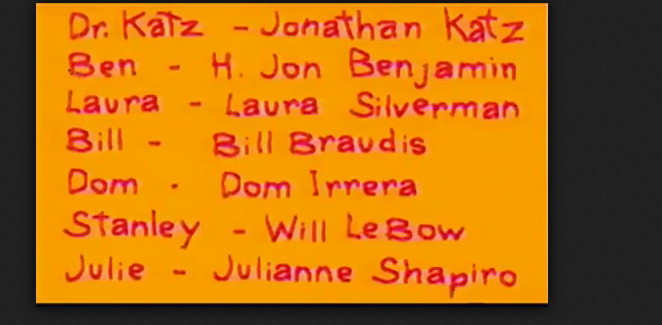 Dr. Katz - Jonathan Katz
Ben - H. Jon Benjamin
Laura - Laura Silverman
Bill - Bill Braudis
Dom - Dom Irrera
Stanley - Will LeBow
Julie - Julianne Shapiro